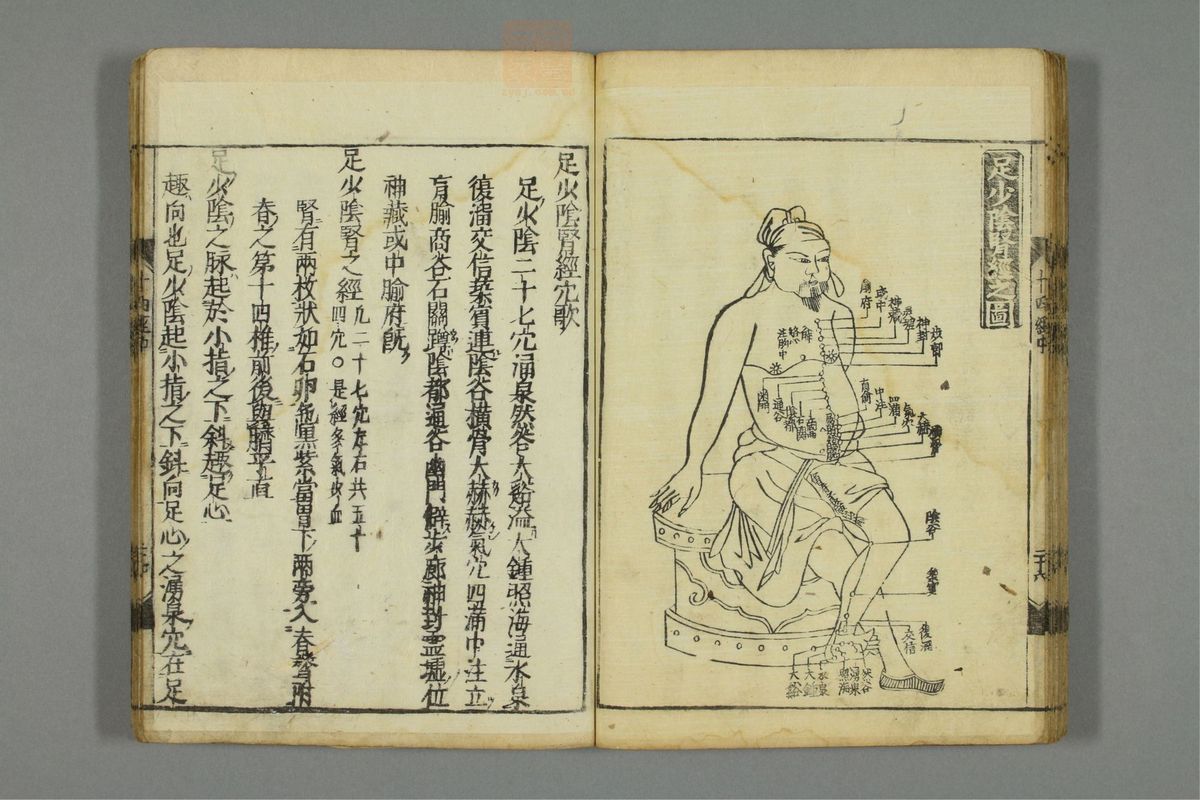 足少陰腎經之圖
俞府
或中
神藏
灵墟
神封
步郎
幽門
通谷
陰都
石關
商曲
肓俞
中注
四滿
氣穴
大赫
橫骨
陰谷
築賓
復溜
交信
然谷
湧泉
照海
水泉
大鍾
大谿
足少陰腎經穴歌
足少陰二十七穴涌泉然谷太谿溢大鍾照海通水泉
復溜交信築賓連陰谷橫骨大赫赫氣穴四滿中注立
肓腧商谷石關蹲陰都通谷幽門僻步廊神封靈墟位
神藏或中腧府既
足少陰腎之經凡二十七穴左右共五十四穴〇是經多氣少血
腎有兩枚狀如石卵色黒紫當胃下兩旁入脊膂附
脊之第十四椎前後與臍平直
足少陰之脉起於小指之下斜趣足心
趣向也足少陰起小指之下斜向足心之湧泉穴在足
十四經中
二十六